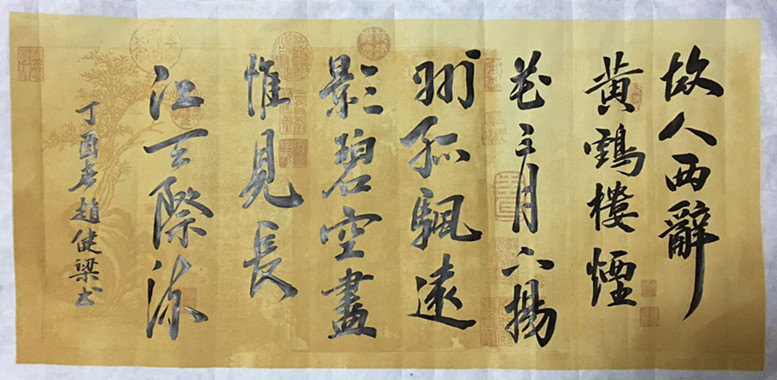 故人西辭
黄鶴樓煙
花三月下揚
州孤颿遠
影碧空盡
惟見長
江天際流
丁酉春趙健梁书